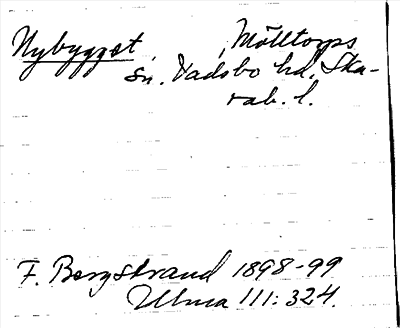 Nybygget, Mölltorps
sn. Vadsbo hd, Ska-
rab. l.
F. Bergstrand 1898-99
Ulma 111: 324.